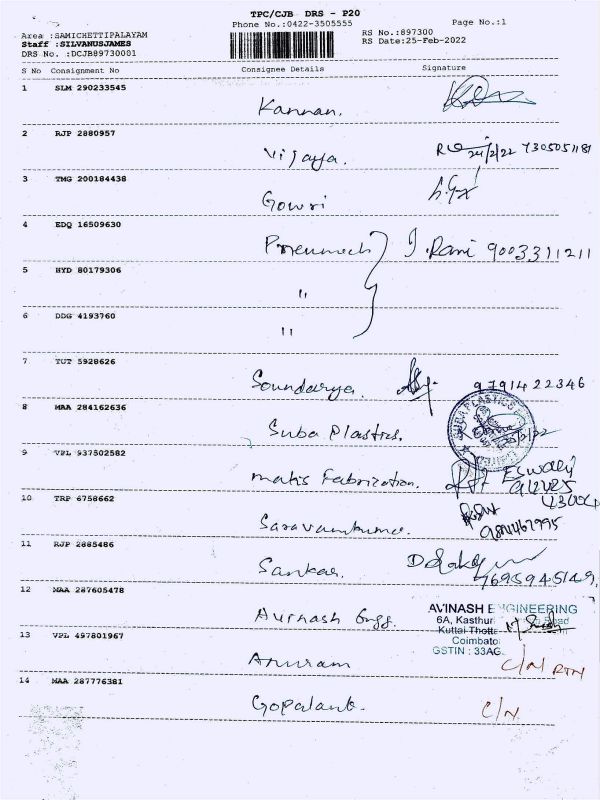 TPC/CJB DRS - P20
Phone No.:0422-3505555
Page No.:1
Area :SAMICHETTIPALAYAM
RS No.:897300
Staff :SILVANUSJAMES
RS Date:25-Feb-2022
DRS No. :DCJB89730001
S No Consignment No Consignee Details Signature
1 SLM 290233545
Kannan.
2 RJP 2880957
Vijaya. 24/2/22 7305051181
3 TMG 200184438
Gowri
4 EDQ 16509630
Pneumech J. Rani 9003311211
5 HYD 80179306
"
6 DDG 4193760
"
7 TUT 5928626
Soundarya. 9791422346
8 MAA 284162636
Suba Plastics. SUBA PLASTICS
9 VPL 937502582
Matis Fabrization. Eswari
10 TRP 6758662
Saravankumar
11 RJP 2885486
Sankar. 7695945149
12 MAA 287605478
Avinash Engg. AVINASH ENGINEERING
6A, Kasthuri Road
Kuttai Thotta
Coimbato
GSTIN : 33AG
13 VPL 497801967
Anuram C/N RTN
14 MAA 287776381
Gopalank. C/N.